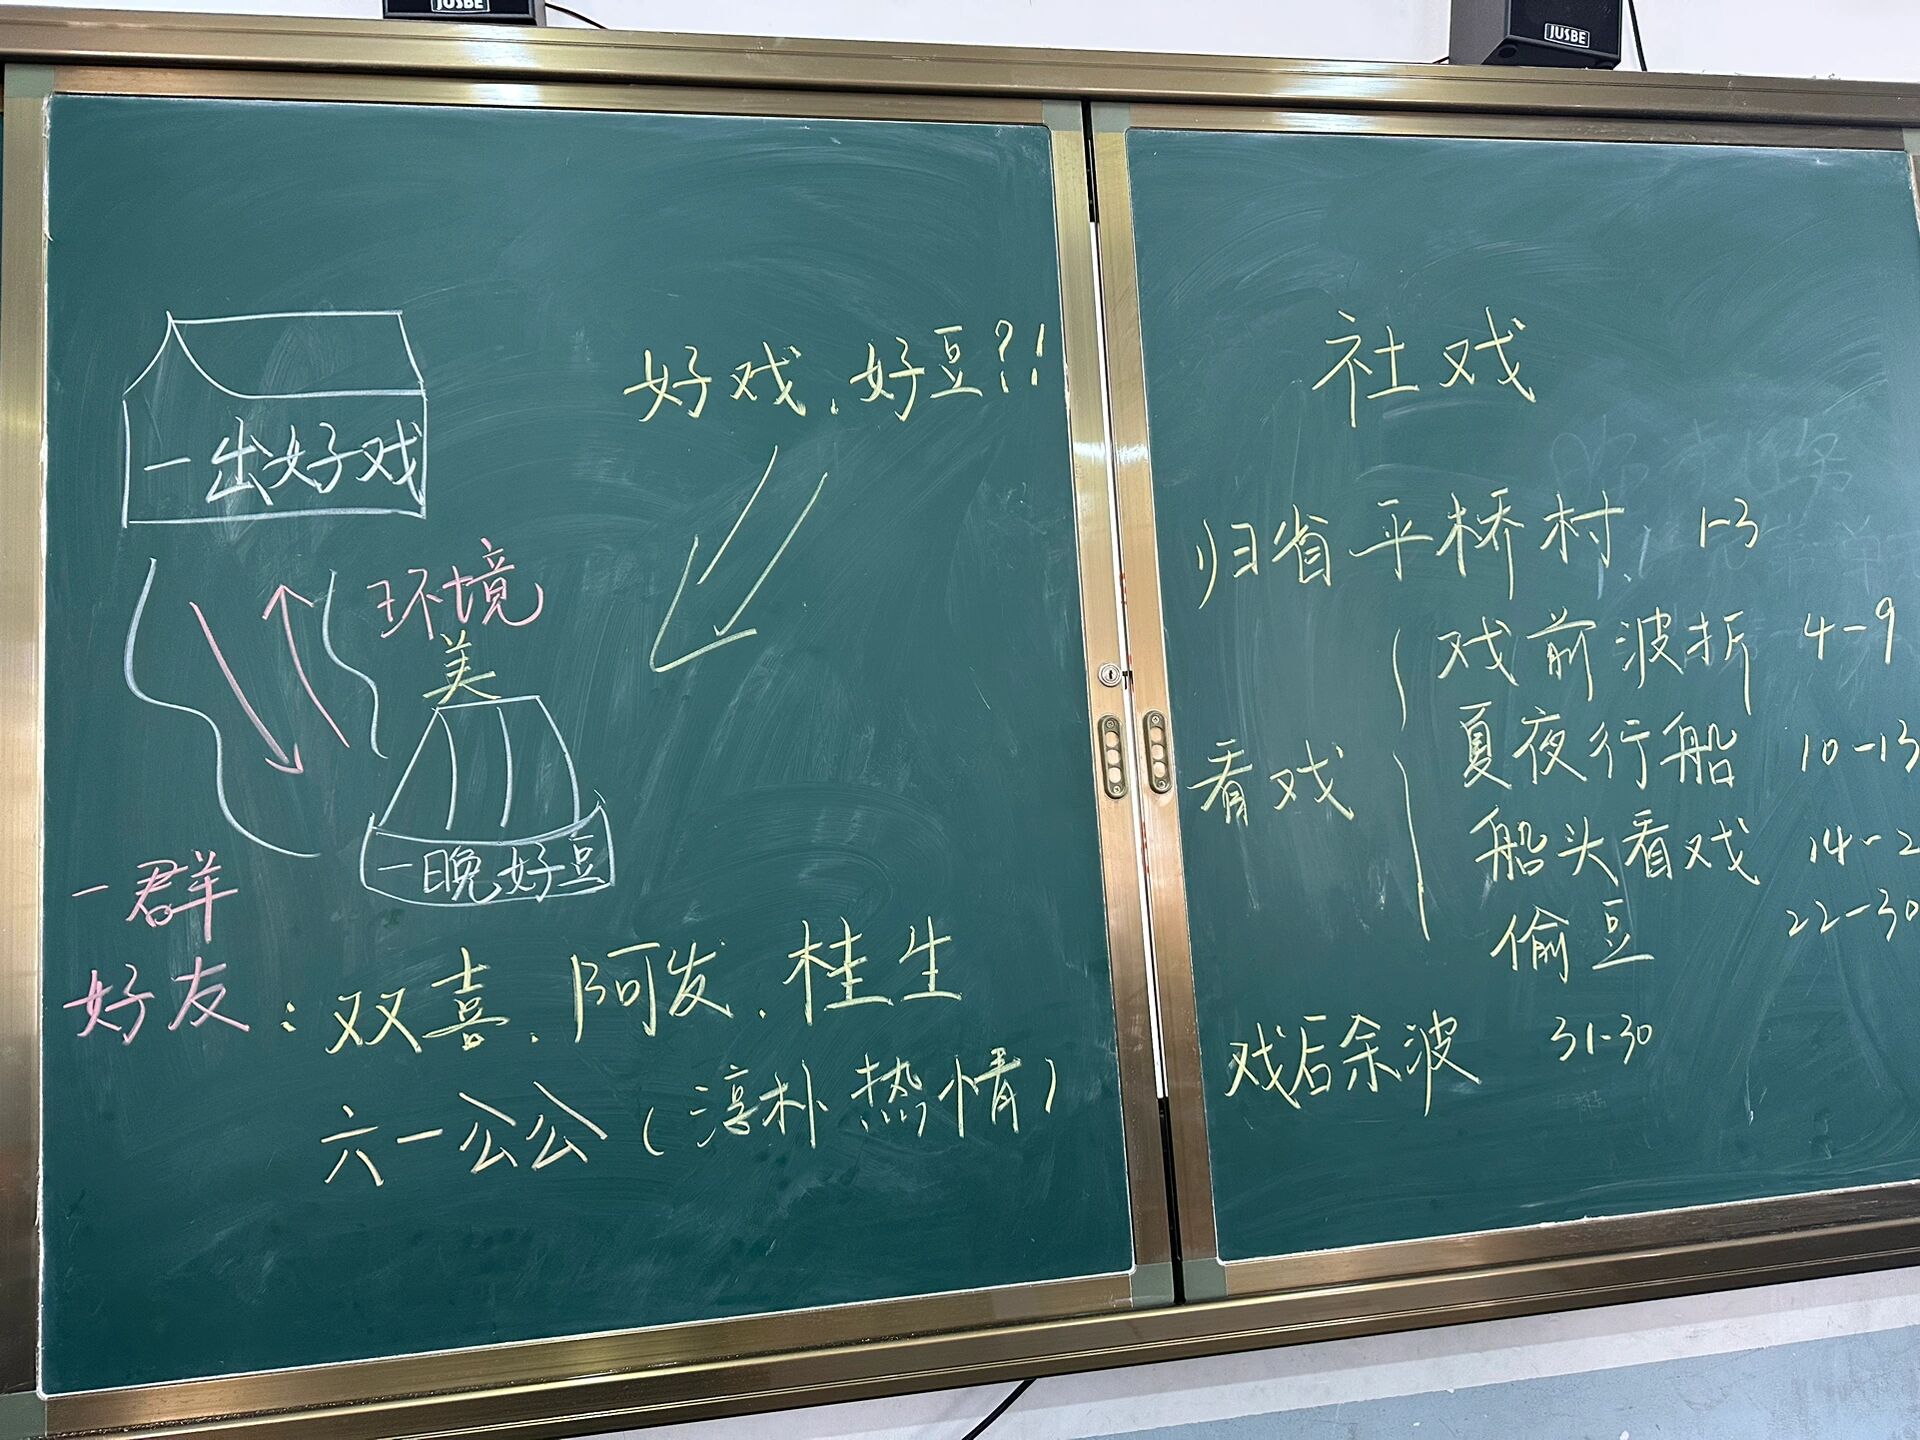 JUSBE
JUSBE
一出好戏
好戏.好豆?!
环境
美
一晚好豆
一群
好友:双喜.阿发.桂生
六一公公(淳朴热情)
社戏
归省平桥村 1-3
戏前波折 4-9
夏夜行船 10-13
看戏
船头看戏 14-2
偷豆 22-30
戏后余波 31-30